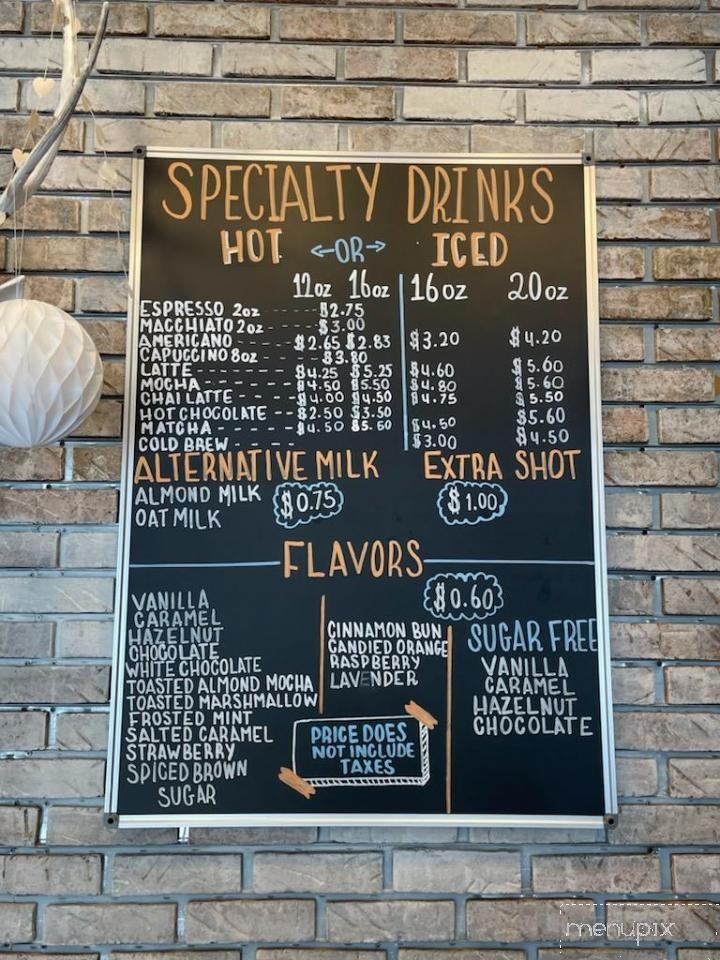 SPECIALTY DRINKS
HOT ←OR→ ICED
12oz 16oz 16oz 20oz
ESPRESSO 2oz ----- $2.75
MACCHIATO 2oz ---- $3.00
AMERICANO ----- $2.65 $2.83 $3.20 $4.20
CAPUCCINO 8oz ---- $3.80
LATTE ------ $4.25 $5.25 $4.60 $5.60
MOCHA ------ $4.50 $5.50 $4.80 $5.60
CHAI LATTE ---- $4.00 $4.50 $4.75 $5.50
HOT CHOCOLATE -- $2.50 $3.50
MATCHA ------ $4.50 $5.50 $4.50 $5.60
COLD BREW ---- $3.00 $4.50
ALTERNATIVE MILK EXTRA SHOT
ALMOND MILK $0.75 $1.00
OAT MILK
FLAVORS
$0.60
VANILLA
CARAMEL
HAZELNUT
CHOCOLATE
WHITE CHOCOLATE
TOASTED ALMOND MOCHA
TOASTED MARSHMALLOW
FROSTED MINT
SALTED CARAMEL
STRAWBERRY
SPICED BROWN
SUGAR
CINNAMON BUN
CANDIED ORANGE
RASPBERRY
LAVENDER
PRICE DOES
NOT INCLUDE
TAXES
SUGAR FREE
VANILLA
CARAMEL
HAZELNUT
CHOCOLATE
menupix